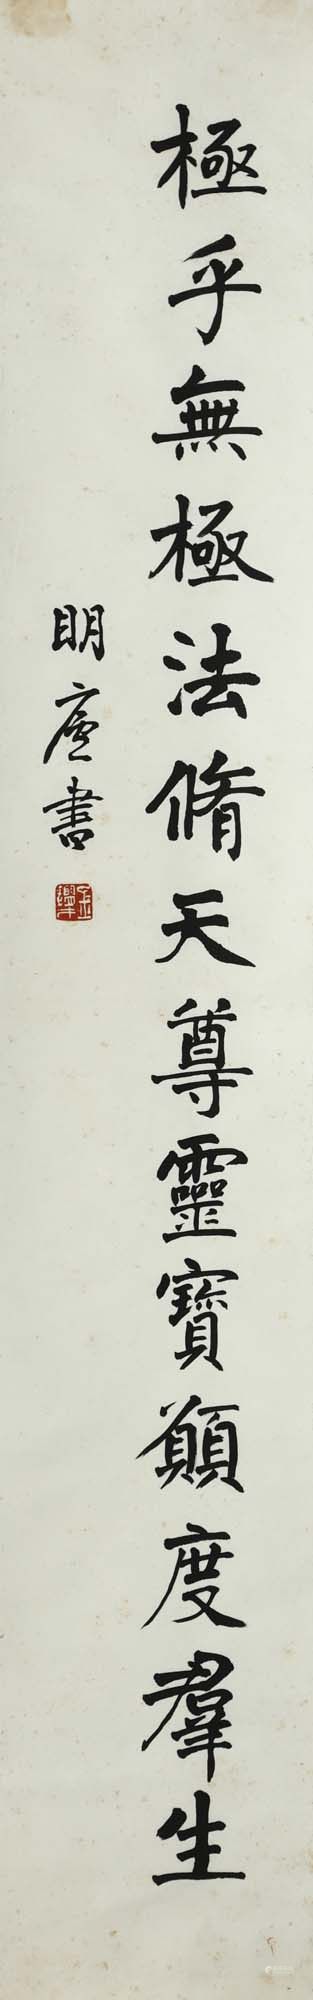 極乎無極法脩天尊靈寶願度羣生
明廬書